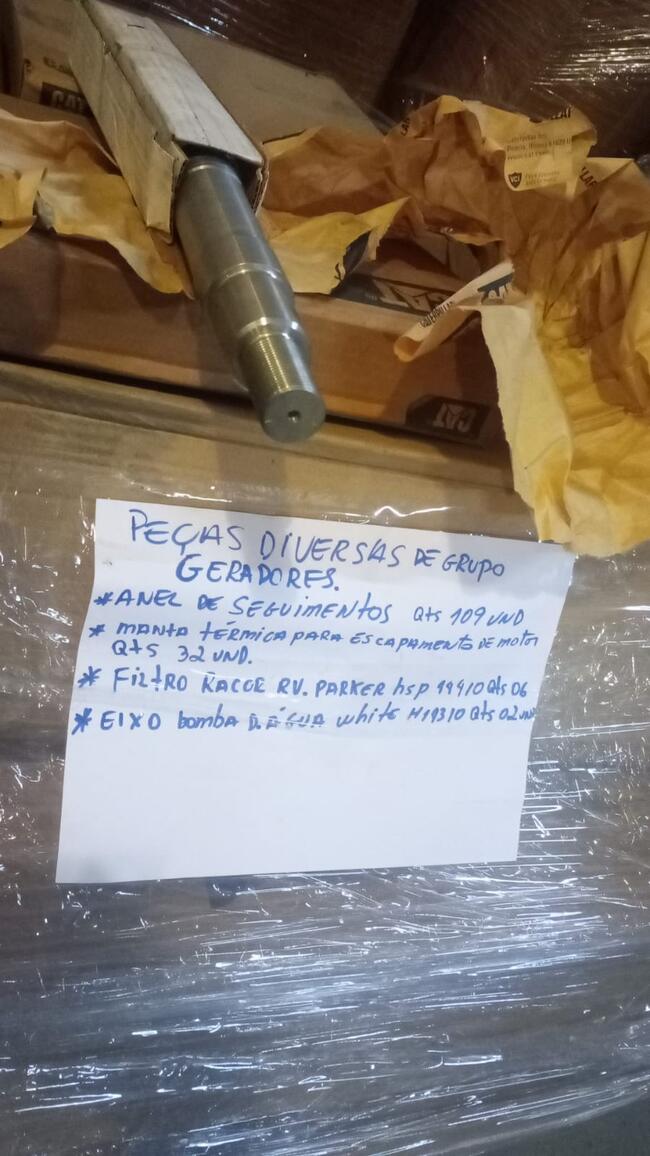 CAT
Caterpillar Inc.
Peoria, Illinois 61629 U
VCI
CATERPILLAR
CAT
PEÇAS DIVERSAS DE GRUPO
GERADORES.
* ANEL DE SEGUIMENTOS Qts 109 UND
* MANTA TÉRMICA PARA ESCAPAMENTO DE MOTOR
Qts 32 UND.
* FILTRO RACOR RV. PARKER hsp 19910 Qts 06
* EIXO bomba D. ÁGUA white H19310 Qts 02 UND